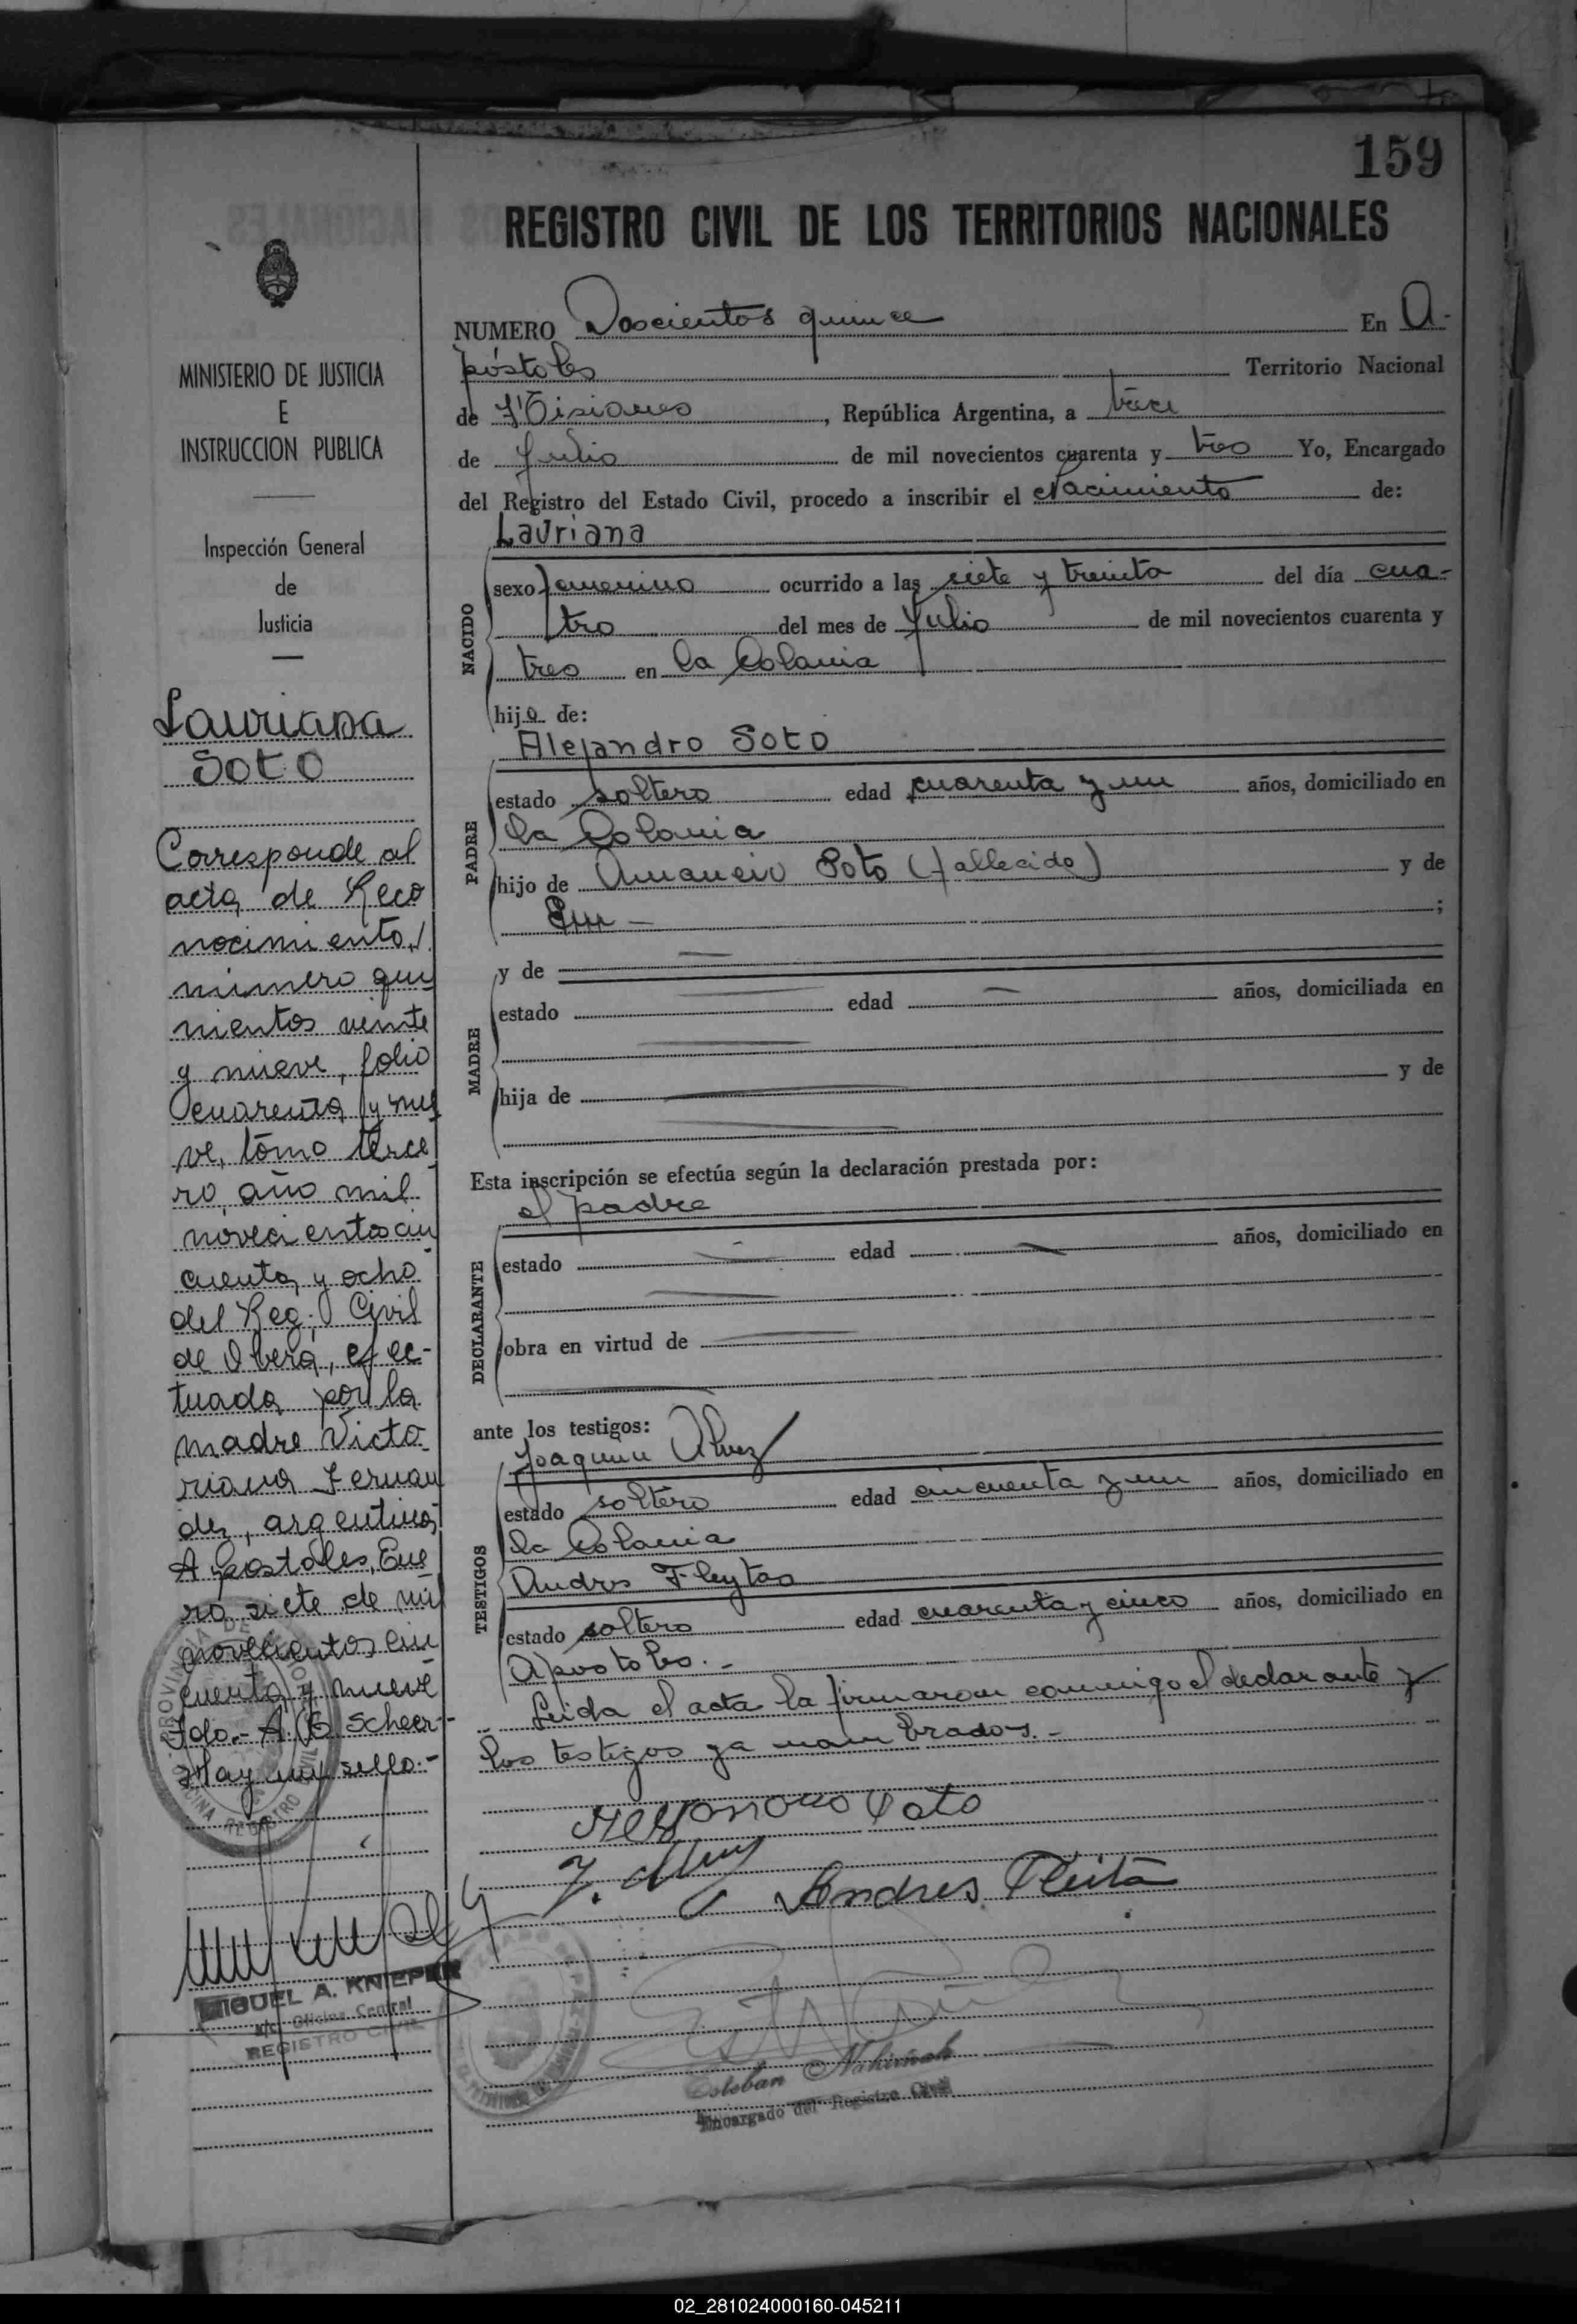 159
REGISTRO CIVIL DE LOS TERRITORIOS NACIONALES
MINISTERIO DE JUSTICIA
E
INSTRUCCION PUBLICA
Inspección General
de
Justicia
Lauriana
Soto
Corresponde al
acta de Reco
nocimiento
número qui
nientos veinte
y nueve, folio
cuarenta y nue
ve, tomo terce
ro, año mil
novecientos cin
cuenta y ocho
del Reg. Civil
de Oberá, efec-
tuada por la
madre Victo
riana Fernan
dez, argentina
Apostoles, Ene
ro, siete de mil
novecientos cin
cuenta y nueve
Fdo.- A. E. Scheer-
Hay un sello.-
MIGUEL A. KNIEPER
a/c. Oficina Central
REGISTRO CIVIL
NUMERO Doscientos quince En A-
póstoles Territorio Nacional
de Misiones, República Argentina, a trece
de Julio de mil novecientos cuarenta y tres Yo, Encargado
del Registro del Estado Civil, procedo a inscribir el Nacimiento de:
Lauriana
NACIDO
sexo femenino ocurrido a las siete y treinta del día cua-
tro del mes de Julio de mil novecientos cuarenta y
tres en la Colonia
hija de:
Alejandro Soto
PADRE
estado soltero edad cuarenta y un años, domiciliado en
la Colonia
hijo de Soto (fallecido) y de
;
MADRE
y de
estado edad años, domiciliada en
hija de y de
Esta inscripción se efectúa según la declaración prestada por:
el padre
DECLARANTE
estado edad años, domiciliado en
obra en virtud de
ante los testigos:
Joaquin Alvez
TESTIGOS
estado soltero edad cincuenta y un años, domiciliado en
la Colonia
Andres Fleytas
estado soltero edad cuarenta y cinco años, domiciliado en
Apostoles.-
Leida el acta la firmaron conmigo el declarante y
los testigos ya nombrados.-
J. Alvez
Andres Fleita
Esteban Nahirñak
Encargado del Registro Civil
02_281024000160-045211